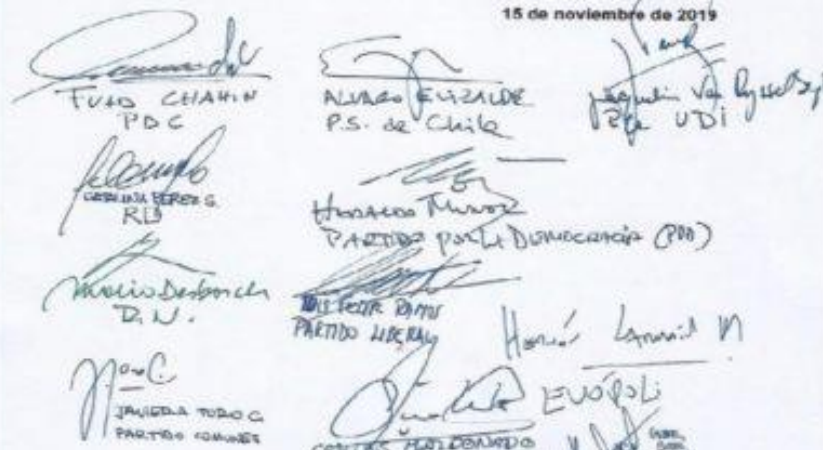 15 de noviembre de 2019
FUAD CHAHIN
PDC
ALVARO ELIZALDE
P.S. de Chile
UDI
CATALINA PEREZ S.
RD
HERALDO MUÑOZ
PARTIDO POR LA DEMOCRACIA (PPD)
Mario Desbordes
R.N.
LUIS FELIPE RAMOS
PARTIDO LIBERAL
Hernán Larraín M
EVÓPOLI
JAVIERA TORO C
PARTIDO COMUNES
CARLOS MALDONADO